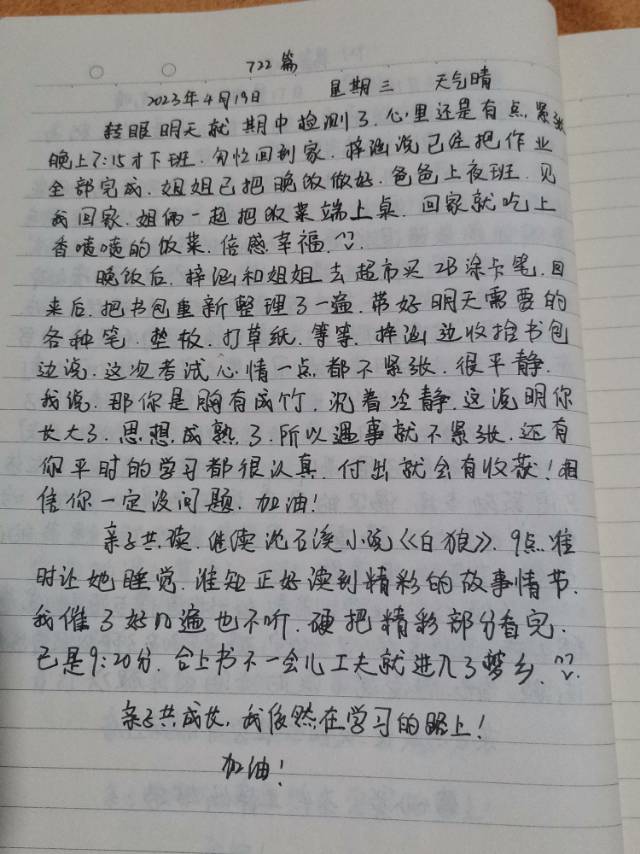 722篇
2023年4月19日 星期三 天气晴
转眼明天就期中检测了.心里还是有点紧张
晚上7:15才下班.匆忙回到家.梓涵说已经把作业
全部完成.姐姐已把晚饭做好.爸爸上夜班.见
我回家.姐俩一起把饭菜端上桌.回家就吃上
香喷喷的饭菜.倍感幸福.^^
晚饭后.梓涵和姐姐去超市买2B涂卡笔.回
来后.把书包重新整理了一遍.带好明天需要的
各种笔.垫板.打草纸.等等.梓涵边收拾书包
边说.这次考试心情一点都不紧张.很平静.
我说.那你是胸有成竹.沉着冷静.这说明你
长大了.思想成熟了.所以遇事就不紧张.还有
你平时的学习都很认真.付出就会有收获!相
信你一定没问题.加油!
亲子共读.继续沈石溪小说《白狼》.9点准
时让她睡觉.谁知正好读到精彩的故事情节.
我催了好几遍也不听.硬把精彩部分看完.
已是9:20分.合上书不一会儿工夫就进入了梦乡.^^
亲子共成长,我依然在学习的路上!
加油!